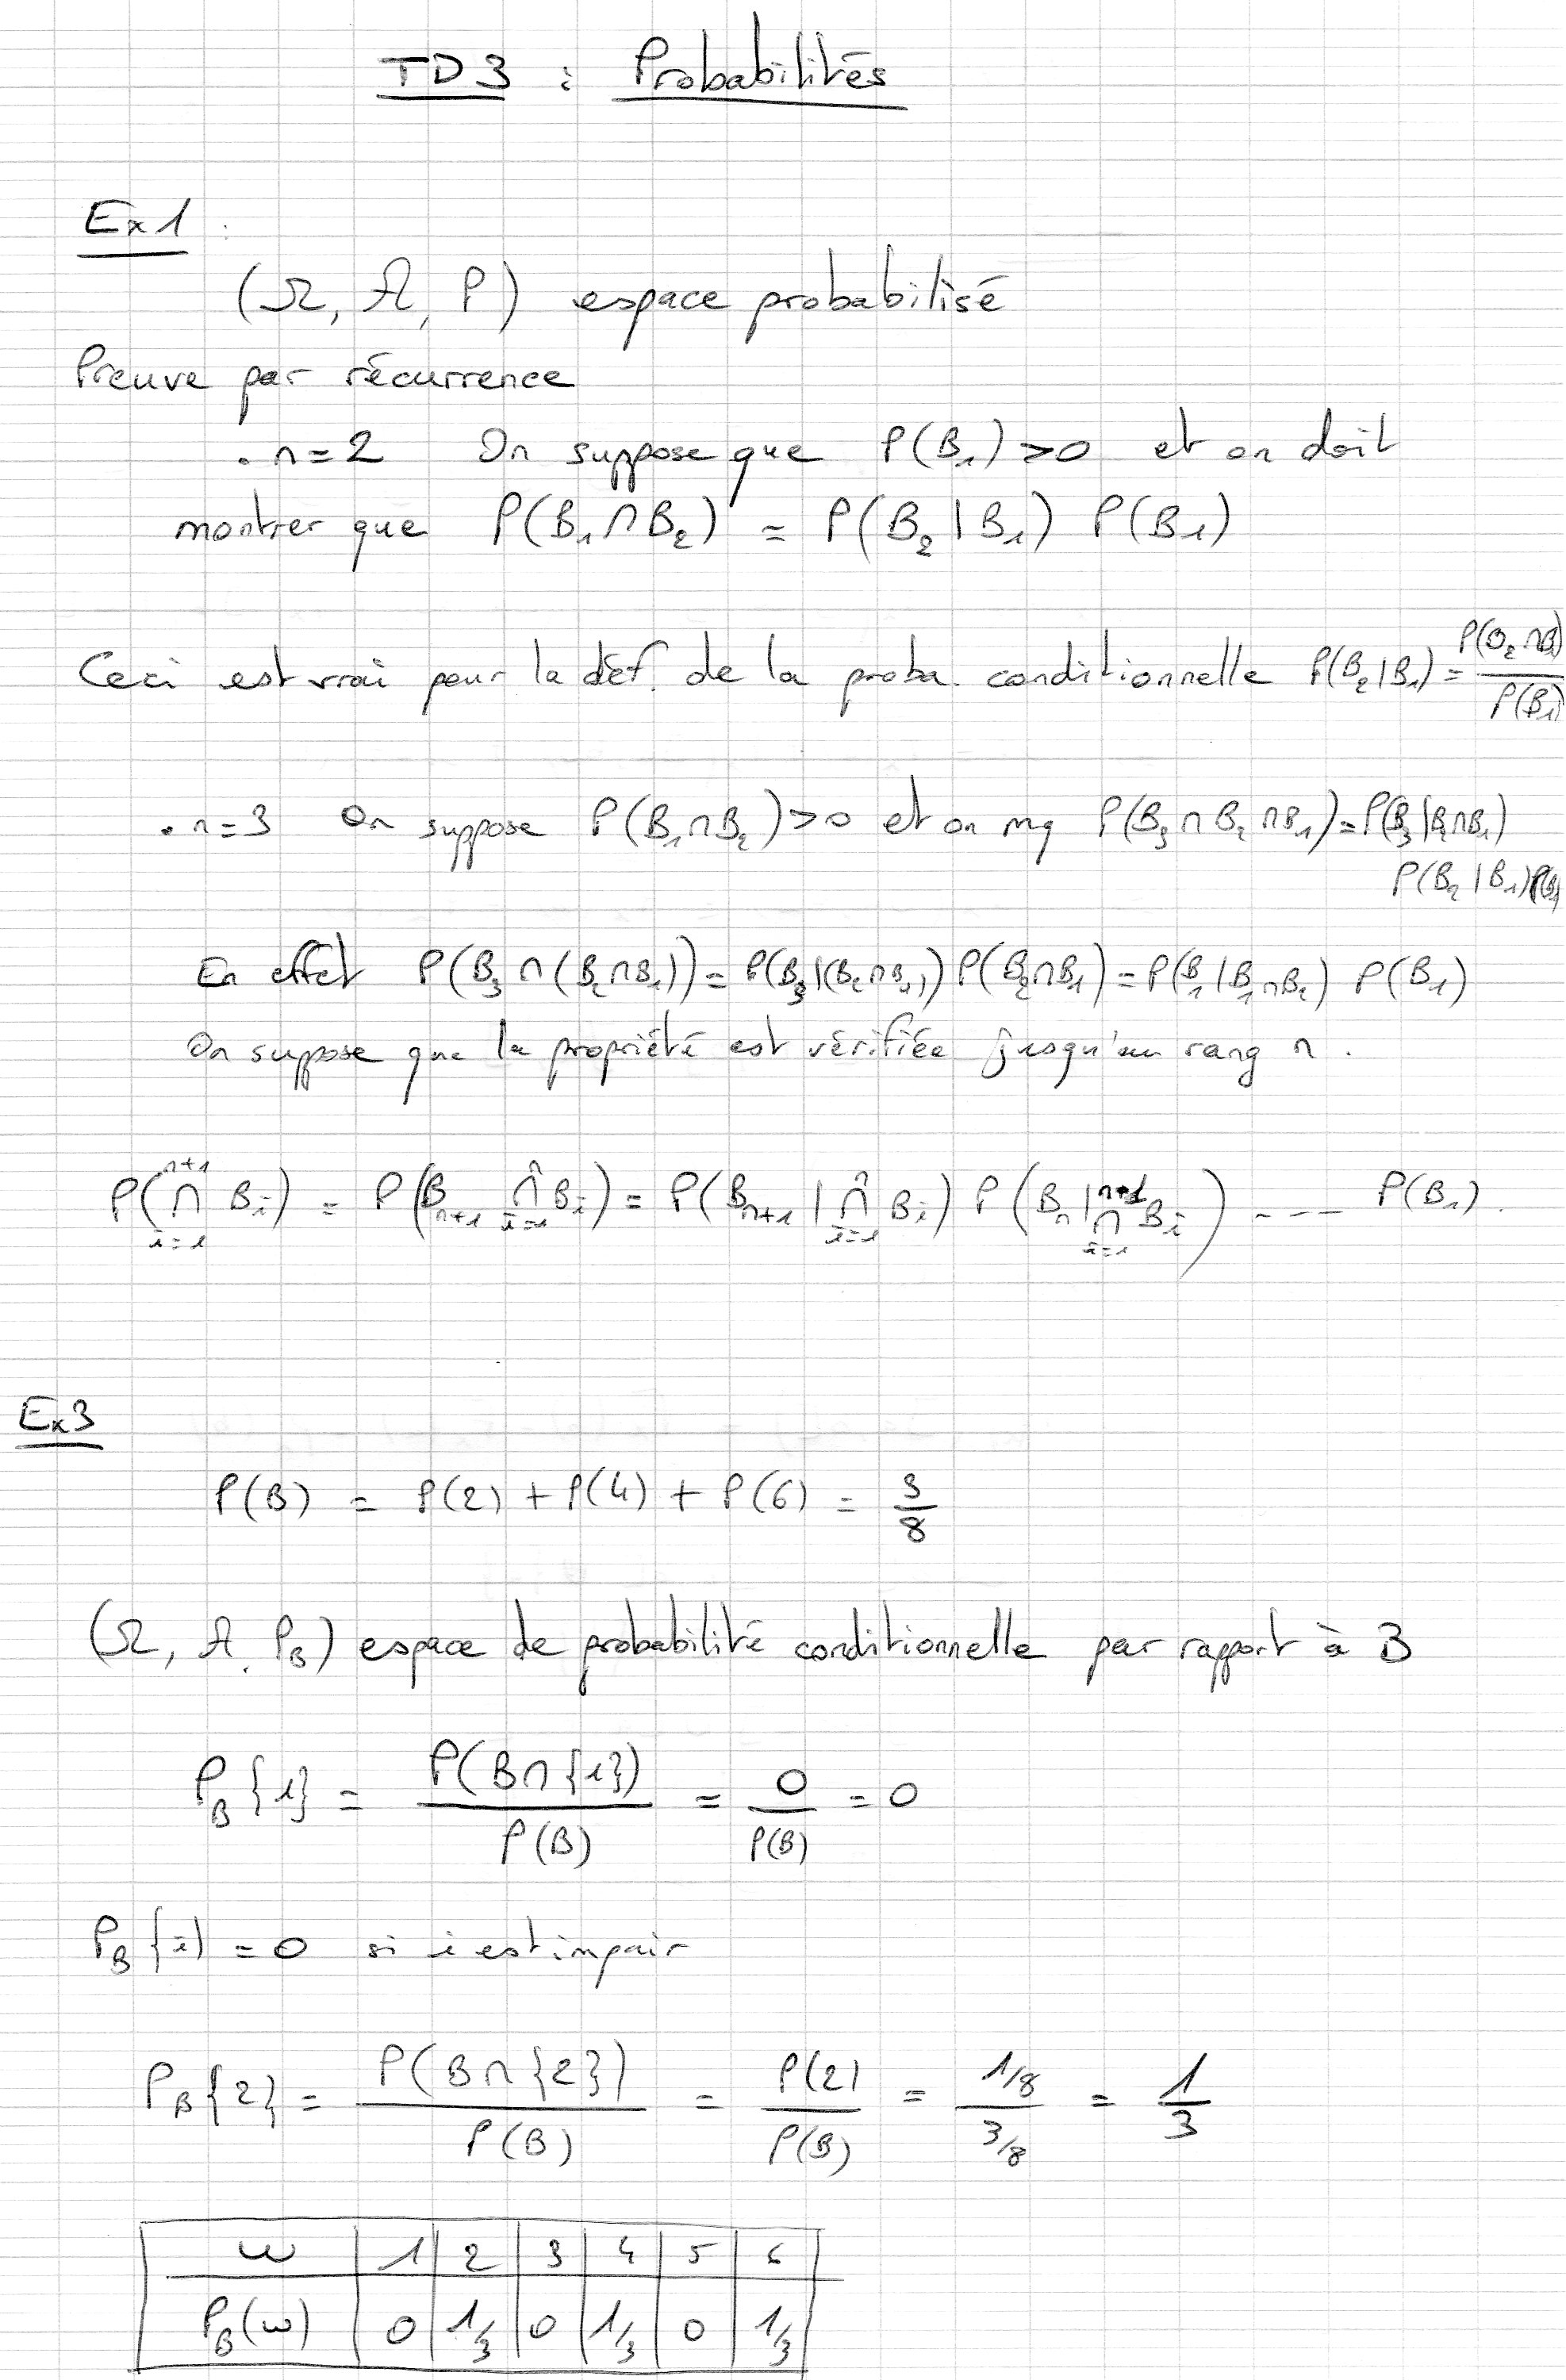 TD3 : Probabilités
Ex 1 :
(Ω, A, P) espace probabilisé
Preuve par récurrence
. n=2 On suppose que P(B₁) > 0 et on doit
montrer que P(B₁∩B₂) = P(B₂|B₁) P(B₁)
Ceci est vrai pour la déf. de la proba. conditionnelle P(B₂|B₁) = P(B₂∩B₁)/P(B₁)
. n=3 On suppose P(B₁∩B₂)>0 et on mq P(B₃∩B₂∩B₁) = P(B₃|B₂∩B₁)
P(B₂|B₁)P(B₁)
En effet P(B₃∩(B₂∩B₁)) = P(B₃|(B₂∩B₁)) P(B₂∩B₁) = P(B₁|B₁∩B₂) P(B₁)
On suppose que la propriété est vérifiée jusqu'au rang n.
P(∩ᵢ₌₁ⁿ⁺¹ Bᵢ) = P(Bₙ₊₁ ∩ᵢ₌₁ⁿ Bᵢ) = P(Bₙ₊₁ | ∩ᵢ₌₁ⁿ Bᵢ) P(Bₙ | ∩ᵢ₌₁ⁿ⁺¹ Bᵢ) ---- P(B₁).
Ex3
P(B) = P(2) + P(4) + P(6) = 3/8
(Ω, A, P_B) espace de probabilité conditionnelle par rapport à B
P_B{1} = P(B∩{1})/P(B) = 0/P(B) = 0
P_B{i) = 0 si i est impair
P_B{2} = P(B∩{2})/P(B) = P(2)/P(B) = 1/8 / 3/8 = 1/3
ω 1 2 3 4 5 6
P_B(ω) 0 1/3 0 1/3 0 1/3